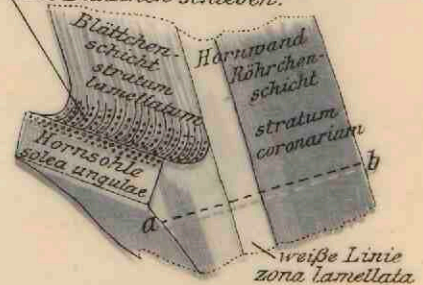 schieben.
Blättchen-
schicht
stratum
lamellatum
Hornwand
Röhrchen-
schicht
stratum
coronarium
Hornsohle
solea ungulae
a
b
weiße Linie
zona lamellata